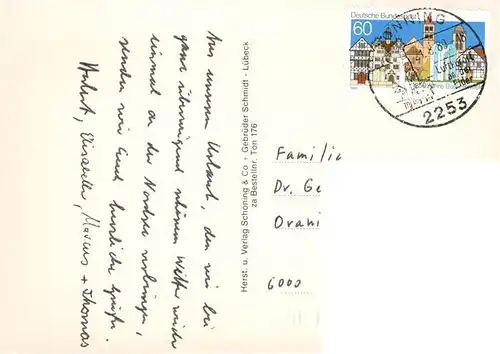 Aus unserem Urlaub, den wir bei
ganz überwiegend schönem Wetter wieder
einmal an der Nordsee verbringen,
senden wir Euch herzliche Grüße.
Herbert, Elisabeth, Marcus + Thomas
Herst. u. Verlag Schöning & Co + Gebrüder Schmidt - Lübeck
za Bestellnr. Tön 176
Deutsche Bundespost
60
TÖNNING
2253
Familie
Dr. Ge
Orani
6000